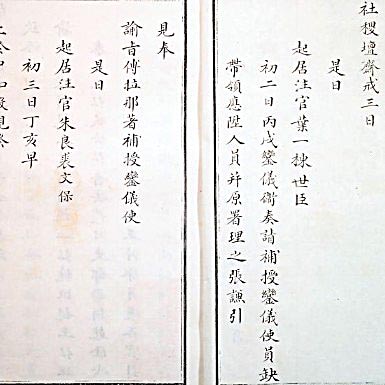 社稷壇齋戒三日
是日
起居注官葉一棟世臣
初二日丙戌鑾儀衛奏請補授鑾儀使員缺
帶領應陞人員并原署理之張謙引
見奉
諭旨傅拉那著補授鑾儀使
是日
起居注官朱良裘文保
初三日丁亥早